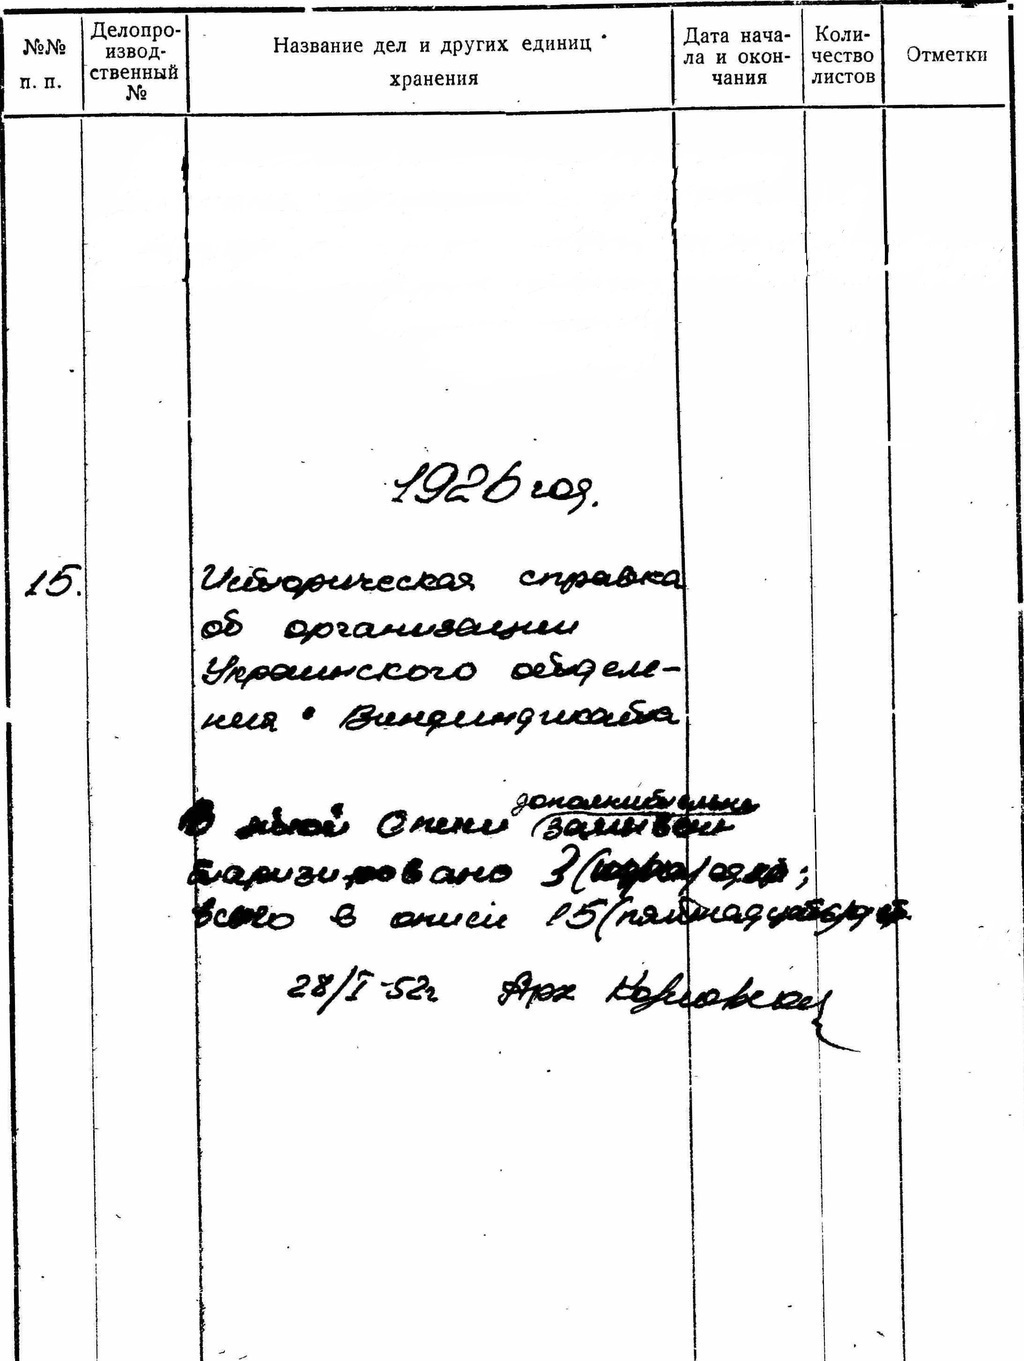 №№ п. п.
Делопро-
извод-
ственный
№
Название дел и других единиц
хранения
Дата нача-
ла и окон-
чания
Коли-
чество
листов
Отметки
1926 год.
15.
Историческая справка
об организации
Украинского отделе-
ния Винсиндиката
В описи дополнительно заинвен
таризировано 3 ( ) ;
всего в описи 15 (пятнадцать)
28/I-52г Арх